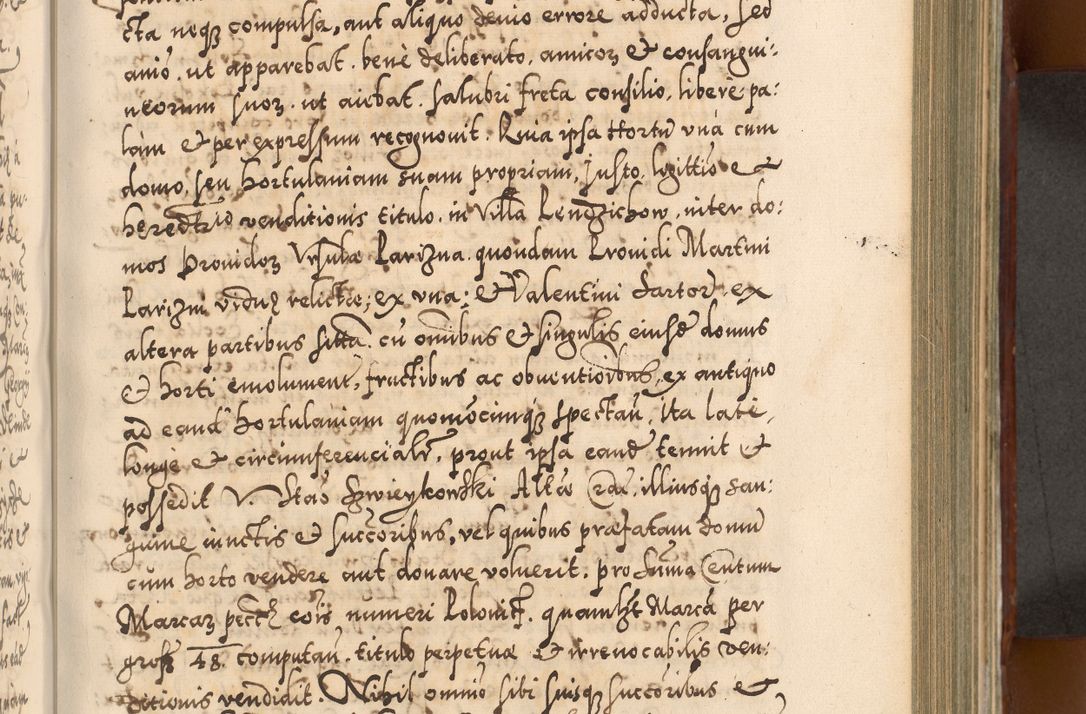 cta neqꝫ compulsa, aut aliquo denio errore adducta, sed
anio, ut apparebat, benè deliberato, amicoꝝ & consangui:
neorum suoꝝ, ut aiebat, salubri freta consilio, libere pa:
làm & per expressum recognouit. Quia ipsa Hortũ vnà cum
domo, seu hortulaniam suam propriam, Justo, legittiõ &
hereditrio venditionis titulo, in Villa Pendzichow, inter do:
mos prouidoꝝ Vrsulæ Parizna, quondam Prouidi Martini
Parizni viduæ relictæ, ex vna; & Valentini Sartor, ex
altera partibus sittã, cũ omibus & singulis eiusd domus
& horti emolument, fructibus ac obuentioibus, ex antiquo
ad eand hortulaniam quomocunqꝫ spectañ, ita latè,
longè & circumferencialr, prout ipsa eand tenuit &
possedit V. Stao Szwieykowski Altæ Ecclæ, illiusqꝫ san:
guine iunctis & succoribus, vel quibus præfatam domũ
cum horto vendere aut donare voluerit, pro suma Centum
Marcaꝝ pecc eois numeri Polonic, quamlȝt Marcã per
gross 48. computañ, titulo perpetuæ & irreuocabilis ven:
ditionis vendidit. Nihil omnio sibi suisqꝫ succoribus &